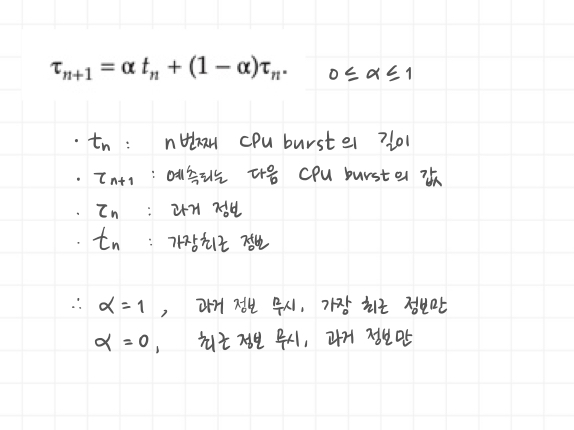 τₙ₊₁ = α tₙ + (1 − α)τₙ. 0 ≤ α ≤ 1
· tₙ : n번째 CPU burst의 길이
· τₙ₊₁ : 예측되는 다음 CPU burst의 값
· τₙ : 과거 정보
· tₙ : 가장최근 정보
∴ α = 1 , 과거 정보 무시, 가장 최근 정보만
α = 0, 최근 정보 무시, 과거 정보만